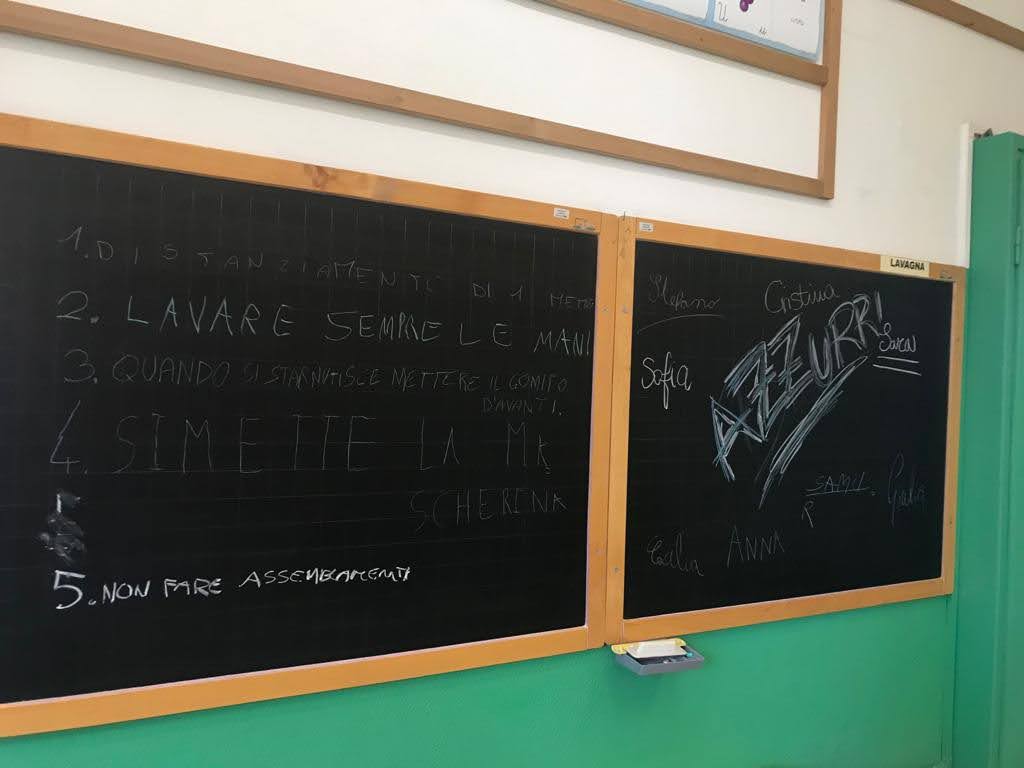 1. DISTANZIAMENTO DI 1 METRO
2. LAVARE SEMPRE LE MANI
3. QUANDO SI STARNUTISCE METTERE IL GOMITO
D'AVANTI.
4. SI METTE LA MA
SCHERINA
5. NON FARE ASSEMBRAMENTI
LAVAGNA
Stefano
Cristina
AZZURRI
Sara
Sofia
SAMU.
R
Giulia
ANNA
U u